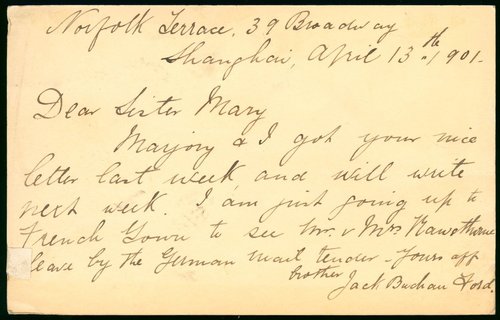 Norfolk Terrace, 39 Broadway
Shanghai, April 13th 1901.
Dear Sister Mary
Marjory & I got your nice
letter last week and will write
next week. I am just going up to
French Town to see Mr. & Mrs. Hawthorne
leave by the German mail tender - Yours aff
brother
Jack Buchan Ford.